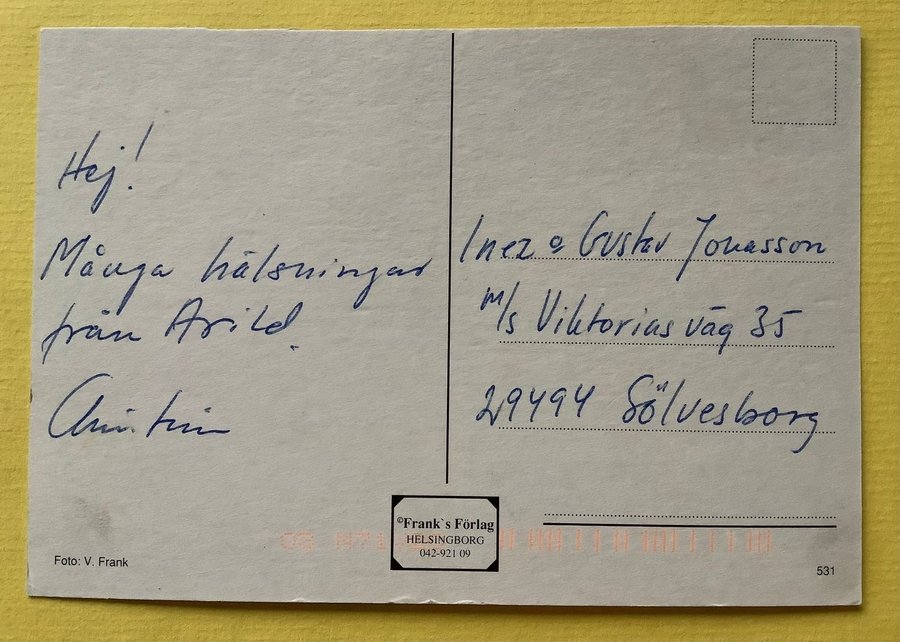 Hej!
Många hälsningar
från Arild.
Inez o Gustav Jonasson
m/s Viktorias väg 35
29494 Sölvesborg
©Frank`s Förlag
HELSINGBORG
042-921 09
Foto: V. Frank
531